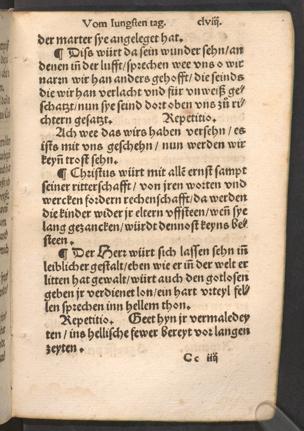 Vom Jungsten tag. clviij.
der marter sye angeleget hat.
¶ Diss würt da sein wunder sehn/an
denen iñ der lufft/sprechen wee vns o wir
narrn wir han anders gehofft/die seinds
die wir han verlacht vnd für vnweiß ge-
schatzt/nun sye seind dort oben vns zů ri-
chtern gesatzt. Repetitio.
Ach wee das wirs haben versehn/es
ists mit vns geschehn/nun werden wir
keyñ trost sehn.
¶ Christus würt mit allē ernst sampt
seiner ritterschafft/von jren worten vnd
wercken fordern rechenschafft/da werden
die kinder wider jr eltern vffsteen/weñ sye
lang gezancken/würdt dennost keyns be-
steen.
¶ Der Herr würt sich lassen sehn iñ
leiblicher gestalt/eben wie er iñ der welt er
litten hat gewalt/würt auch den gotlosen
geben jr verdienet lon/ein hart vrteyl fel-
len sprechen inn hellem thon.
Repetitio. Geet hyn jr vermaledey
ten/ins hellische fewer bereyt vor langen
zeyten.
Cc iiij